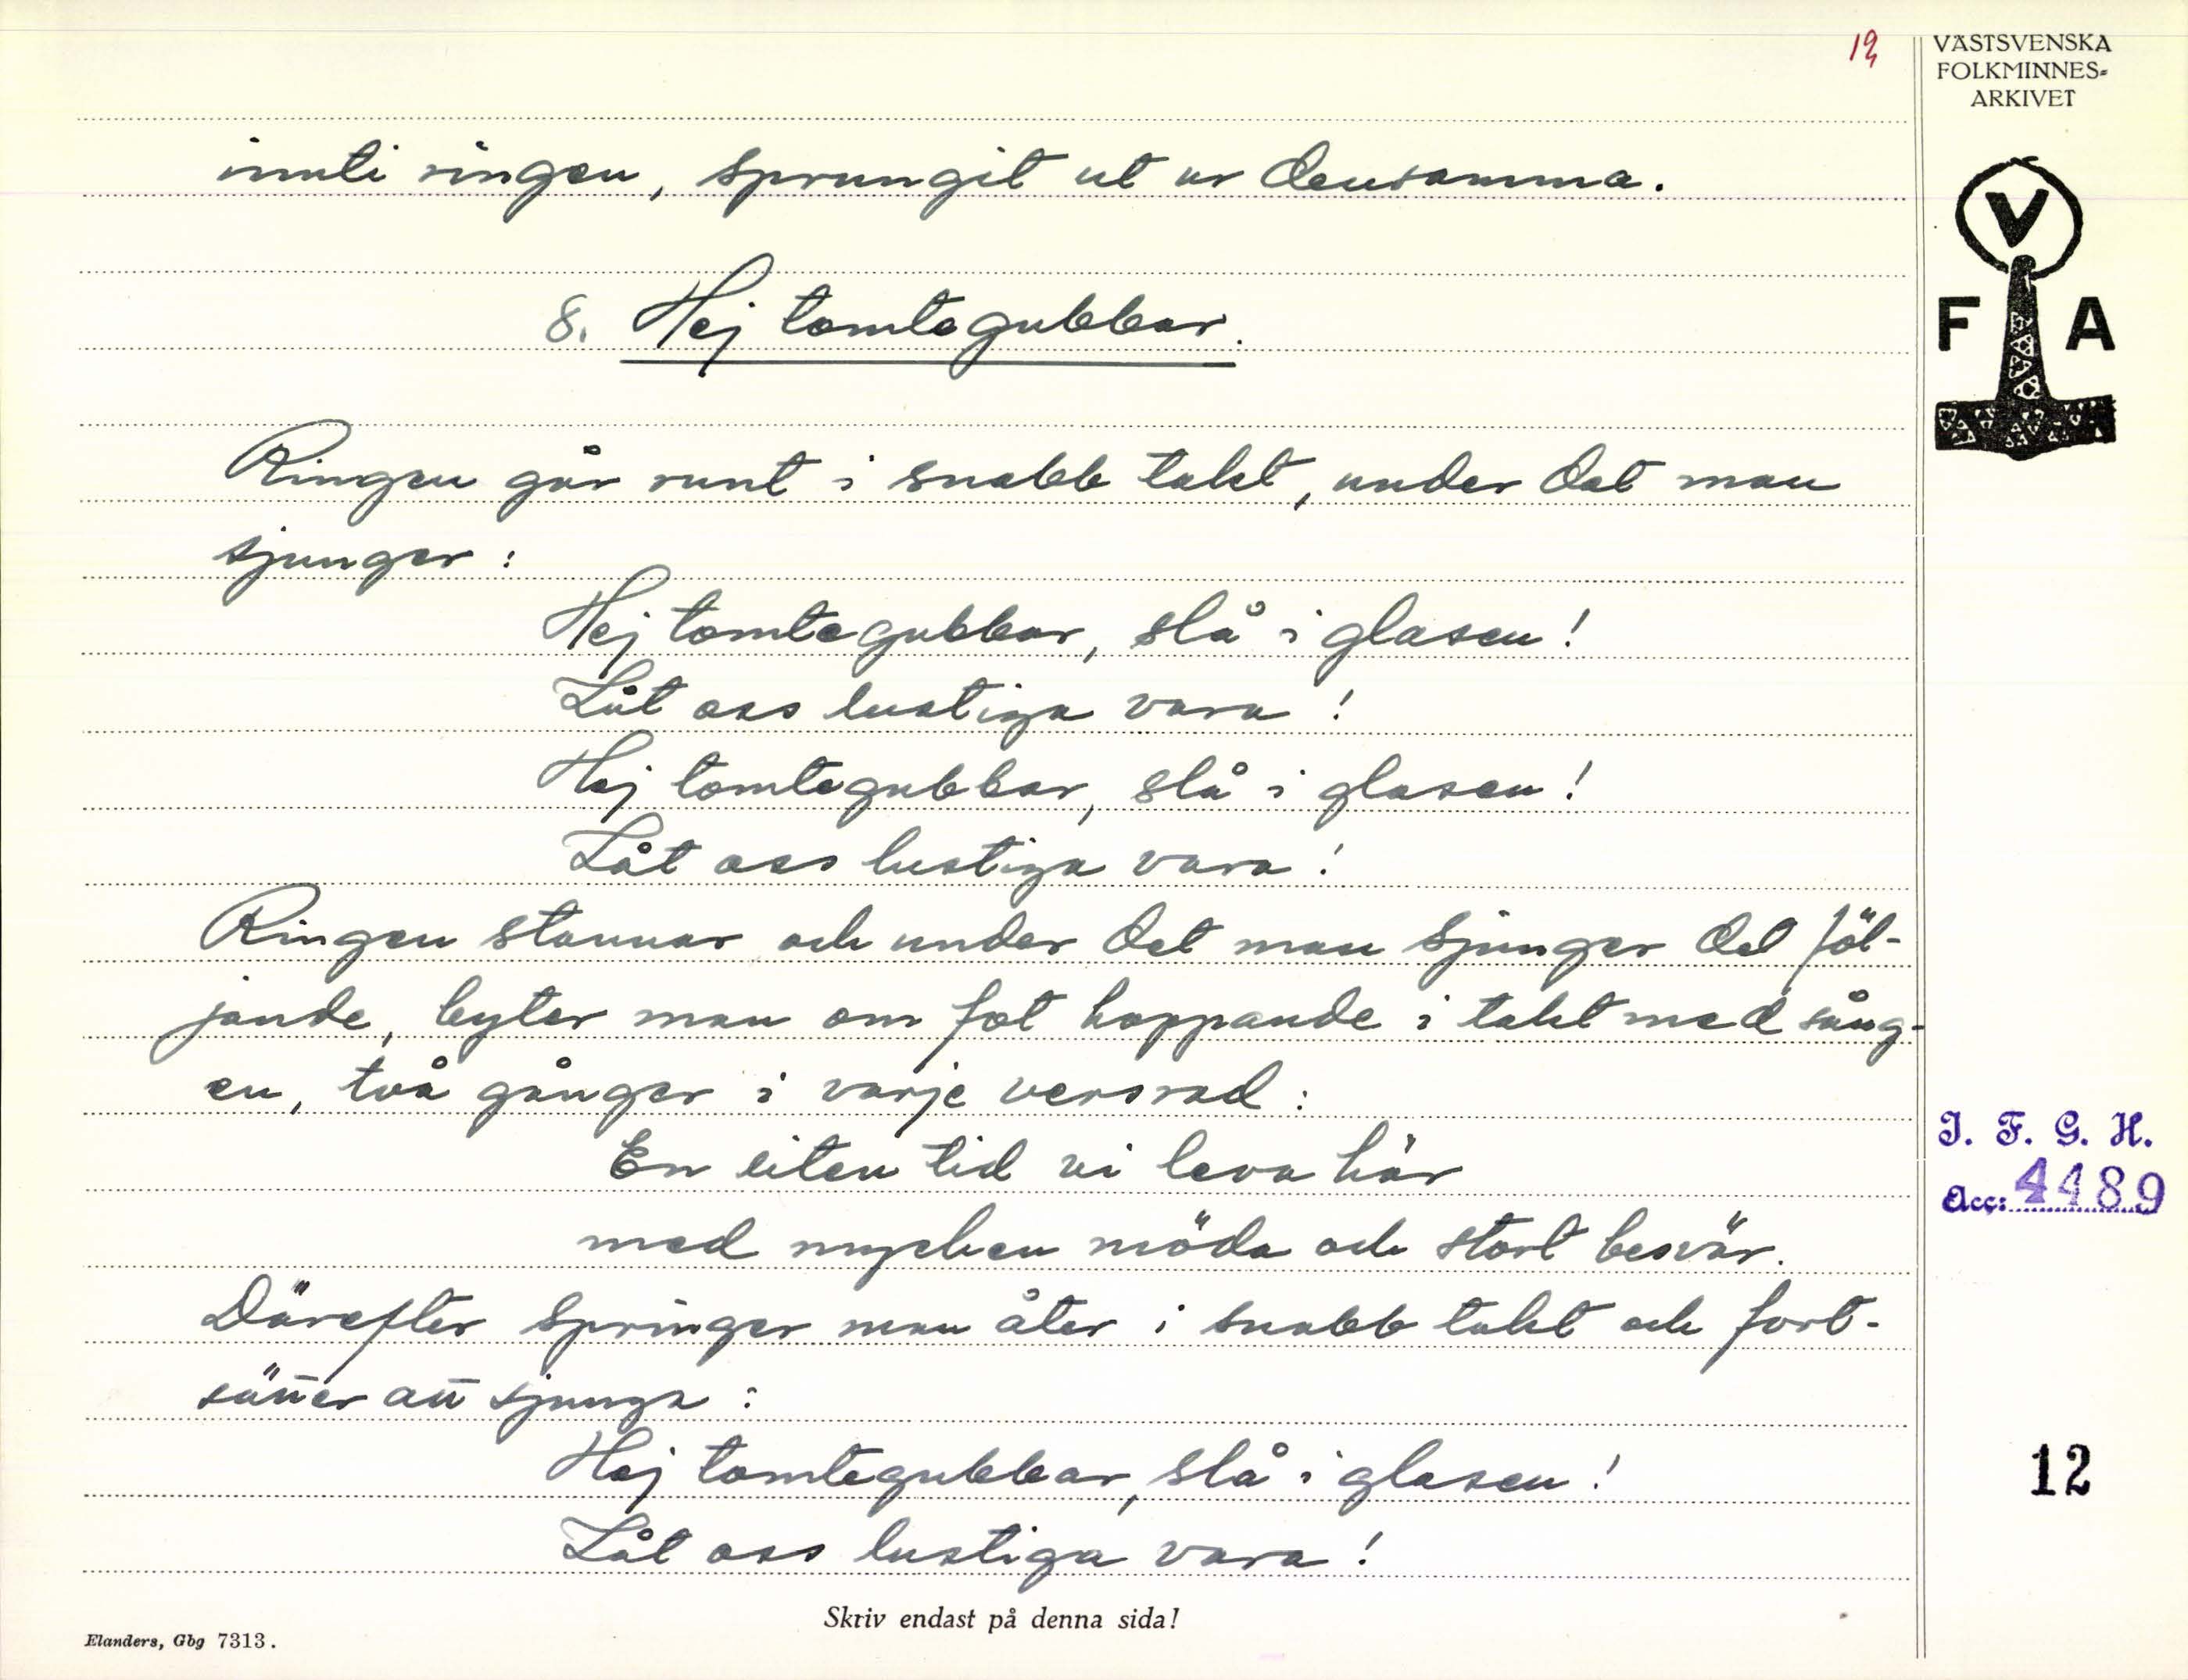 12
VÄSTSVENSKA
FOLKMINNES-
ARKIVET
V
F A
inuti ringen, sprungit ut ur densamma.
8. Hej tomtegubbar.
Ringen går runt i snabb takt, under det man
sjunger:
Hej tomtegubbar, slå i glasen!
Låt oss lustiga vara!
Hej tomtegubbar, slå i glasen!
Låt oss lustiga vara!
Ringen stannar och under det man sjunger det föl-
jande, byter man om fot hoppande i takt med sång-
en, två gånger i varje versrad:
En liten tid vi leva här
med mycken möda och stort besvär.
Därefter springer man åter i snabb takt och fort-
sätter att sjunga:
Hej tomtegubbar, slå i glasen!
Låt oss lustiga vara!
I. F. G. H.
Acc: 4489
12
Skriv endast på denna sida!
Elanders, Gbg 7313.